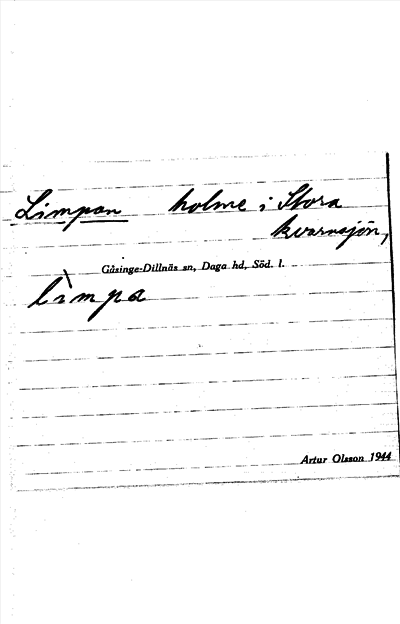 Limpan holme i Stora
kvarnsjön,
Gåsinge-Dillnäs sn, Daga hd, Söd. l.
lìmpa
Artur Olsson 1944